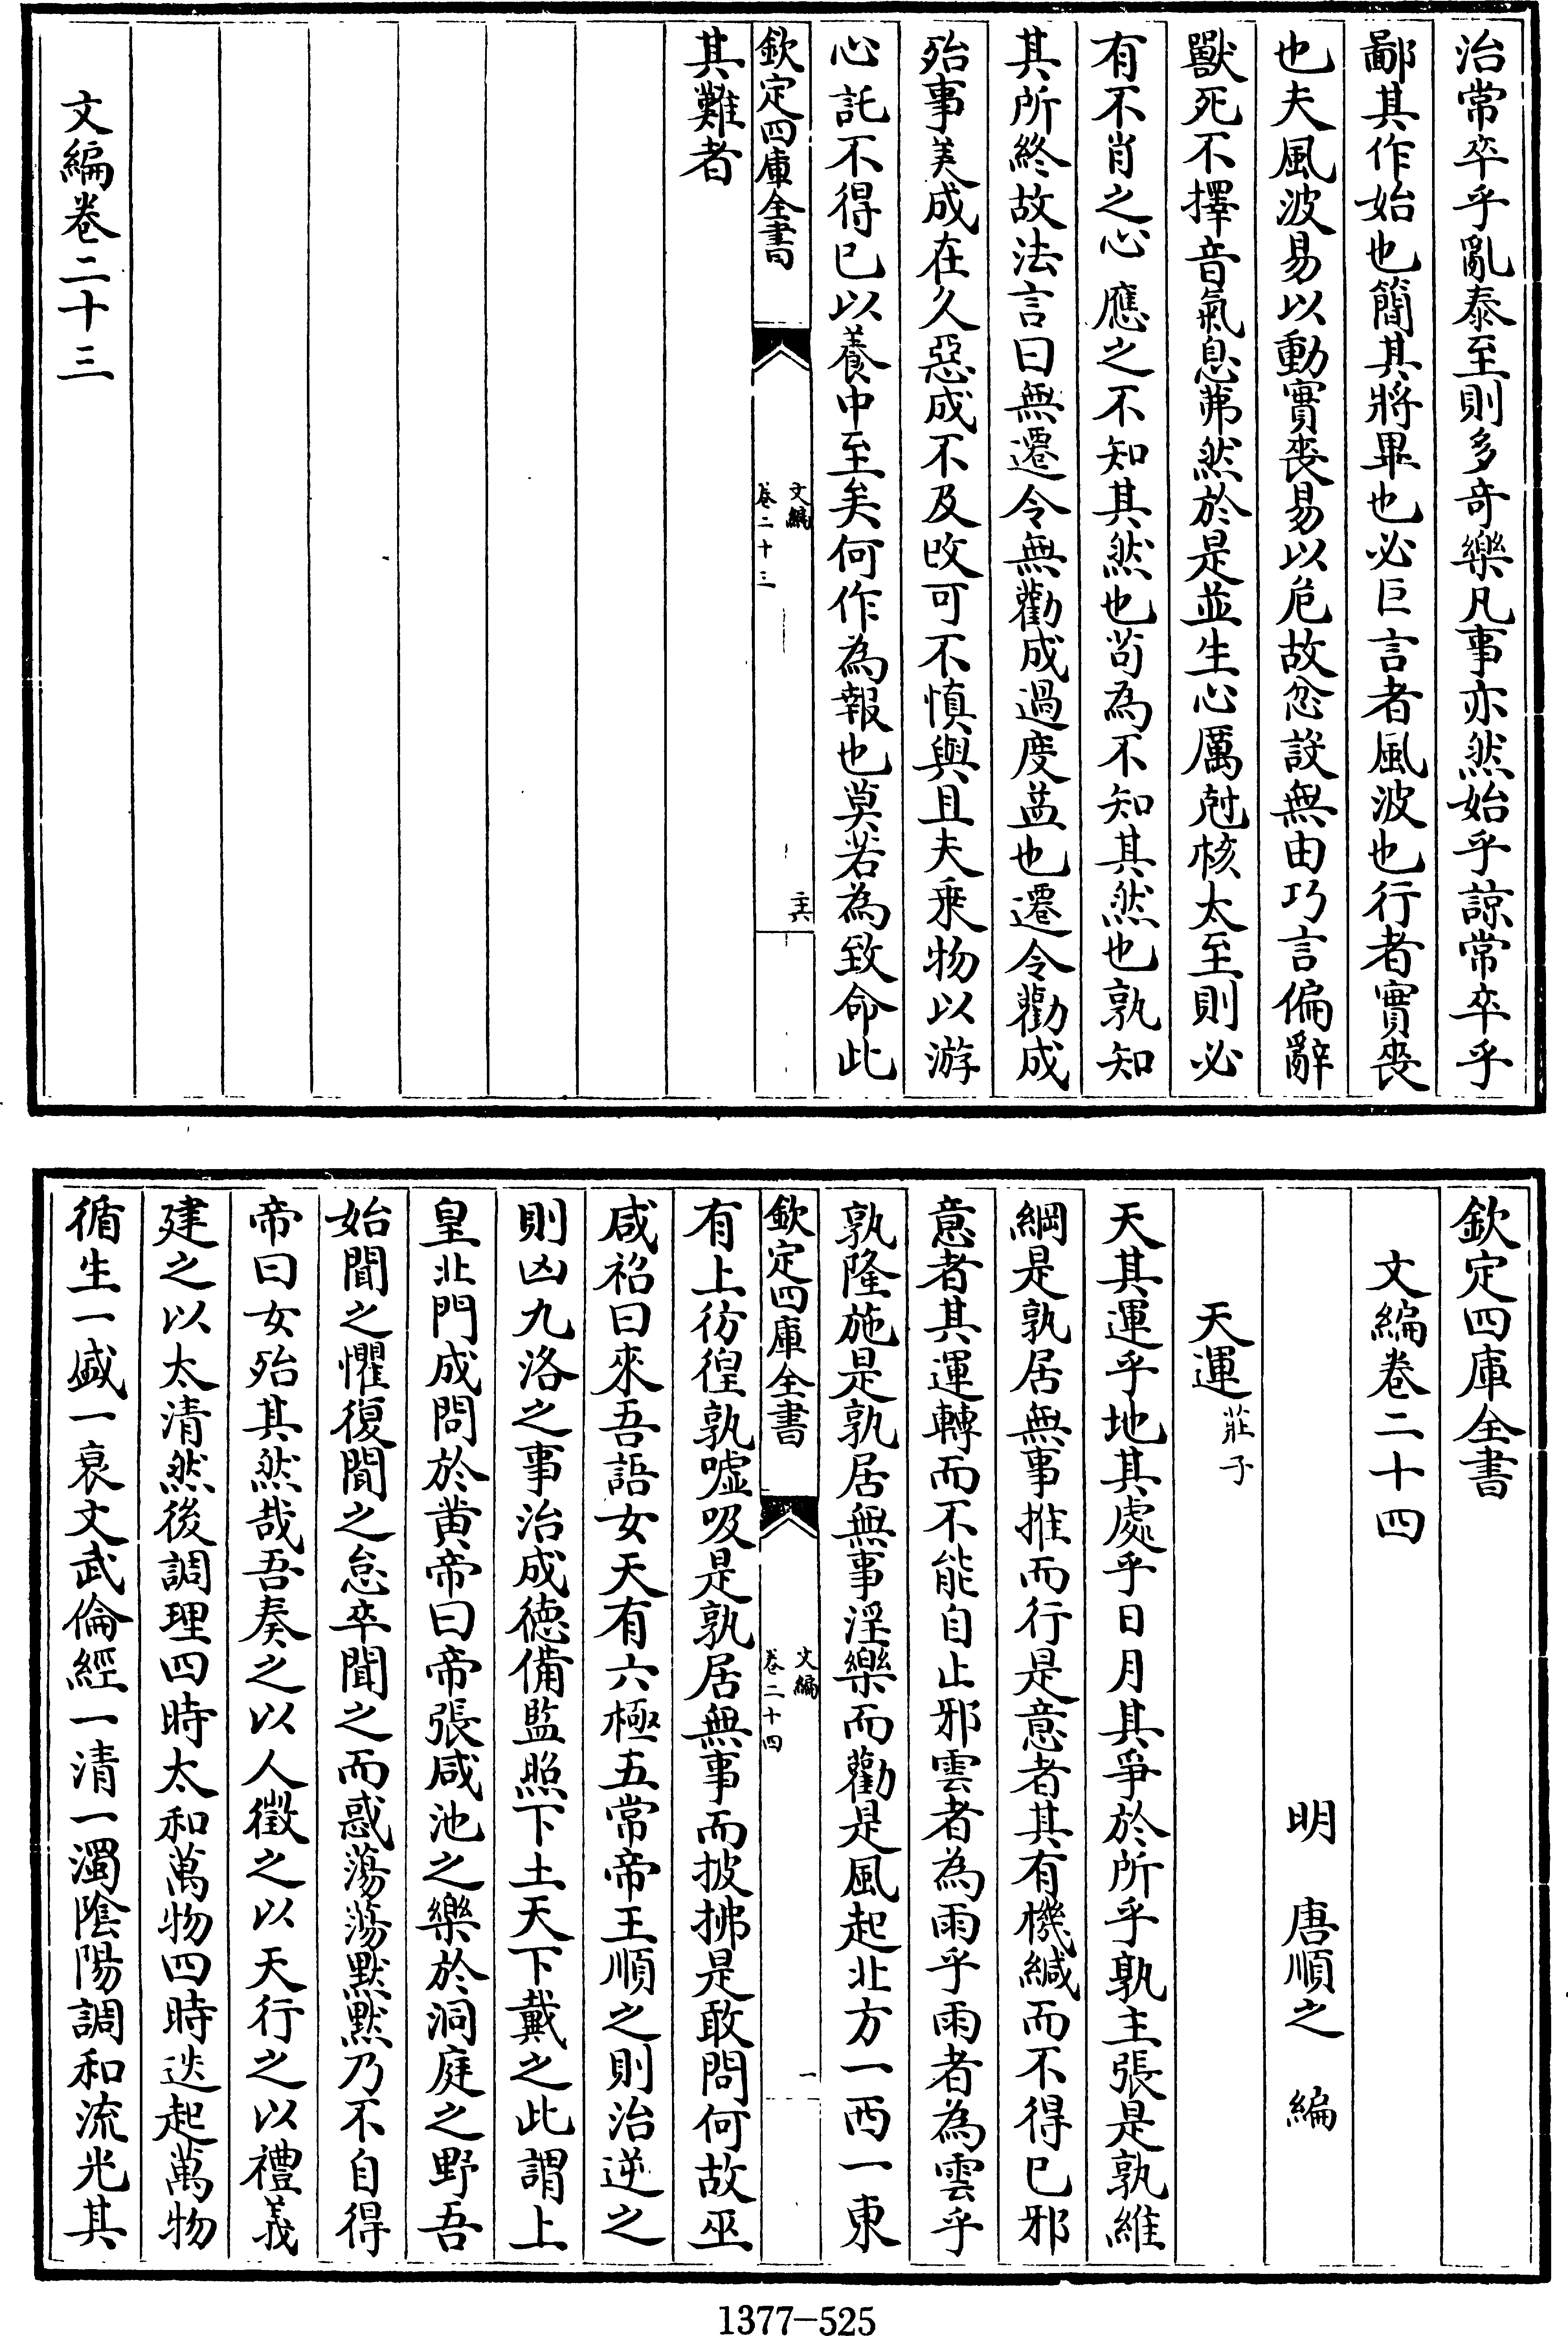 治常卒乎亂泰至則多奇樂凡事亦然始乎諒常卒乎
鄙其作始也簡其將畢也必巨言者風波也行者實喪
也夫風波易以動實喪易以危故忿設無由巧言偏辭
獸死不擇音氣息茀然於是並生心厲尅核太至則必
有不肖之心應之不知其然也苟為不知其然也孰知
其所終故法言曰無遷令無勸成過度益也遷令勸成
殆事美成在久惡成不及改可不慎與且夫乘物以游
心託不得已以養中至矣何作為報也莫若為致命此
欽定四庫全書
文編
卷二十三
其難者
文編卷二十三
欽定四庫全書
文編卷二十四
明 唐順之 編
天運莊子
天其運乎地其處乎日月其爭於所乎孰主張是孰維
綱是孰居無事推而行是意者其有機緘而不得已邪
意者其運轉而不能自止邪雲者為雨乎雨者為雲乎
孰隆施是孰居無事淫樂而勸是風起北方一西一東
欽定四庫全書
文編
卷二十四
一
有上彷徨孰噓吸是孰居無事而披拂是敢問何故巫
咸祒曰來吾語女天有六極五常帝王順之則治逆之
則凶九洛之事治成德備監照下土天下戴之此謂上
皇北門成問於黃帝曰帝張咸池之樂於洞庭之野吾
始聞之懼復聞之怠卒聞之而惑蕩蕩默默乃不自得
帝曰女殆其然哉吾奏之以人徵之以天行之以禮義
建之以太清然後調理四時太和萬物四時迭起萬物
循生一盛一衰文武倫經一清一濁陰陽調和流光其
1377-525